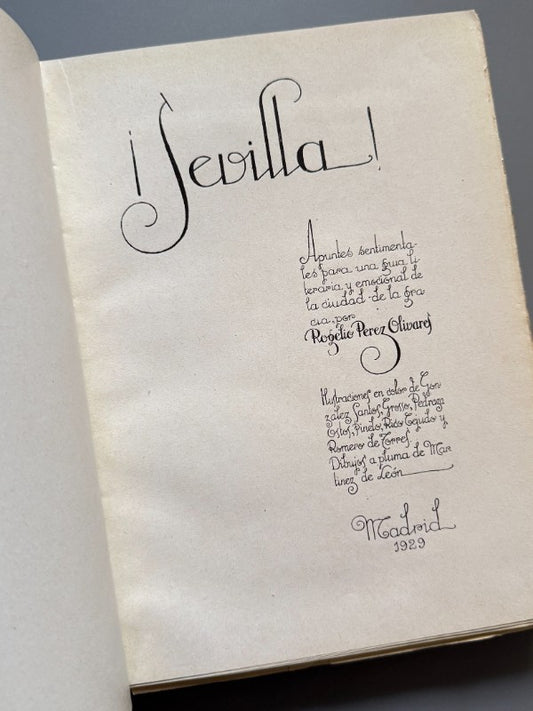 ¡Sevilla!
Apuntes sentimenta-
les para una guia li-
teraria y emocional de
la ciudad de la gra-
cia, por
Rogelio Perez Olivares
Ilustraciones en color de Gon-
zalez Santos, Grosso, Pedraza
Ostos, Pinelo, Rico Cejudo y
Romero de Torres
Dibujos a pluma de Mar
tinez de León
Madrid
1929